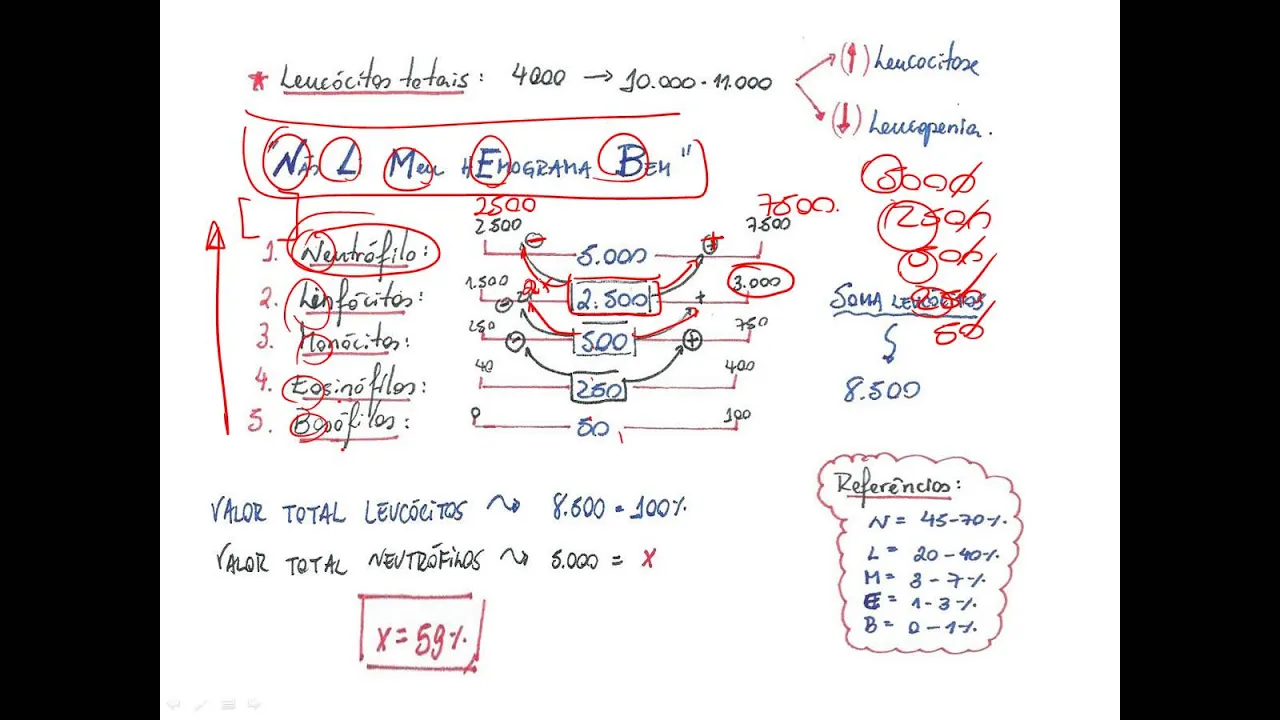 * Leucócitos totais: 4000 → 10.000 - 11.000
(↑) Leucocitose
(↓) Leucopenia.
"Não L Meu hEmograma Bem"
5000
2500
500
250
50
2500 7500.
1. Neutrófilo: 2.500 - 5.000 + 7.500
2. Linfócitos: 1.500 - 2x 2.500 + 3.000
3. Monócitos: 250 - 500 + 750
4. Eosinófilos: 40 250 400
5. Basófilos: 0 50 100
Soma leucócitos
8.500
Valor total leucócitos ~> 8.500 = 100%
Valor total neutrófilos ~> 5.000 = x
x = 59%
Referências:
N = 45-70%
L = 20-40%
M = 3-7%
E = 1-3%
B = 0-1%